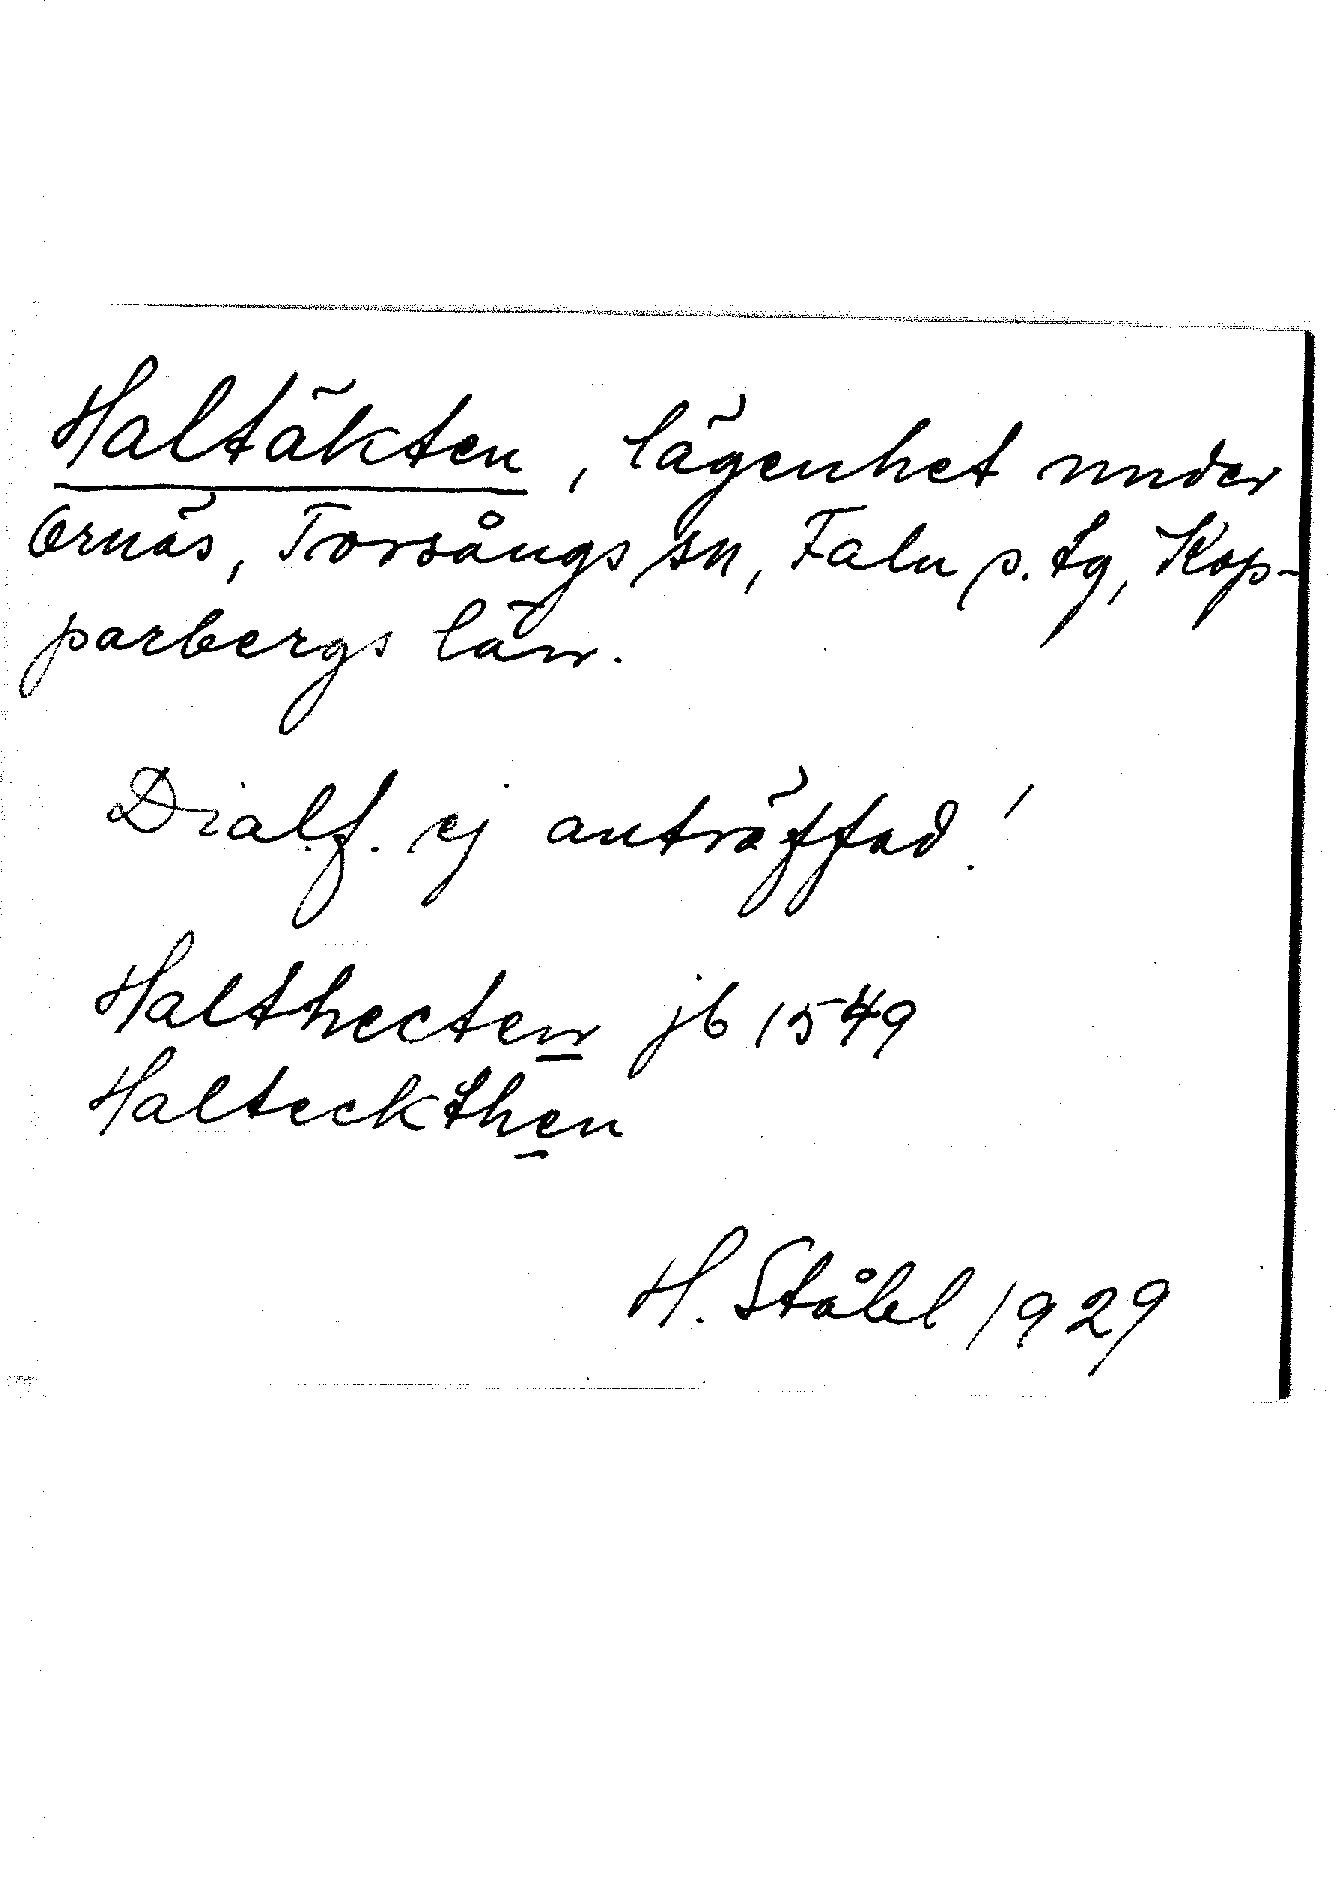 Haltäkten, lägenhet under
Ornäs, Torsångs sn, Falu s. tg, Kop-
parbergs län.
Dial.f. ej anträffad!
Halthecten jb 1549
Halteckthen
H. Ståhl 1929